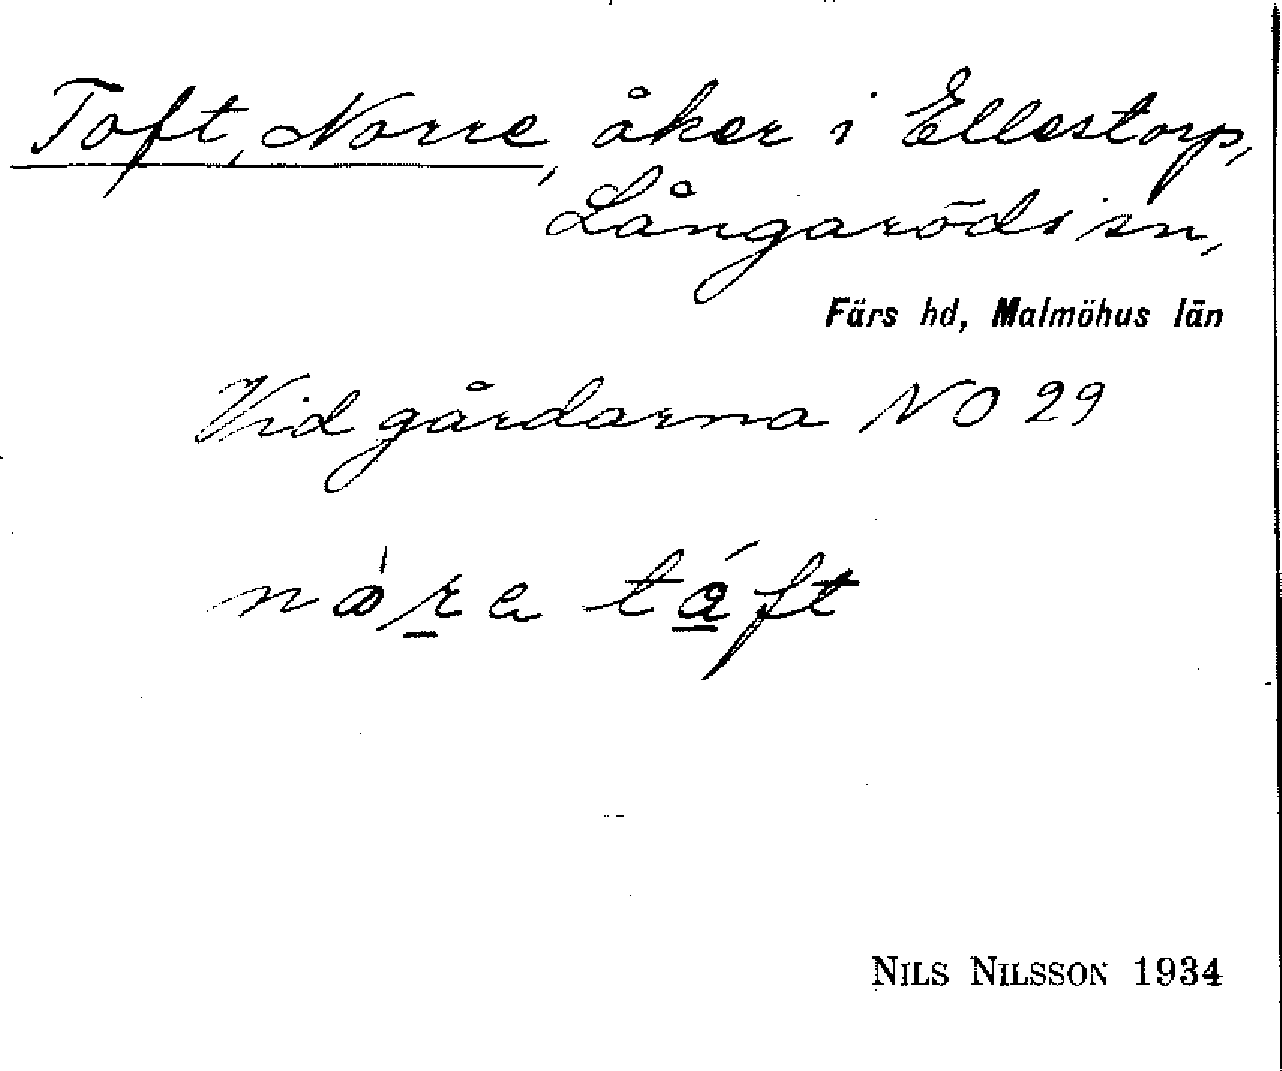 Toft, Norre, åker i Ellestorp,
Långaröds sn,
Färs hd, Malmöhus län
Vid gårdarna NO 29
táft
NILS NILSSON 1934